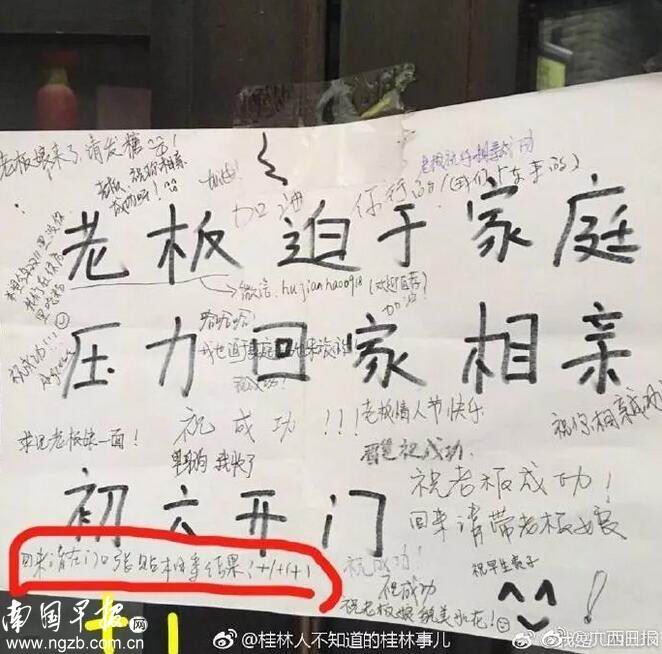 老板娘来了,请发糖
老板,祝你相亲
成功呀!
加油!
加油
老板祝你相亲成功
你行的!(我们广东来的)
老板迫于家庭
微信:hujianhao0918(欢迎自荐)
加油
哈哈哈!
压力回家相亲
祝成功!!!
老板情人节快乐
祝你相亲成功
求见老板娘一面!
单身狗 我来了
祝成功.
祝老板成功!
初六开门
回来请带老板娘
回来请在门口张贴相亲结果!+1+1+1
祝成功!
祝早生贵子
祝成功
祝老板娘貌美如花!
南国早报网
www.ngzb.com
@桂林人不知道的桂林事儿
@广西日报